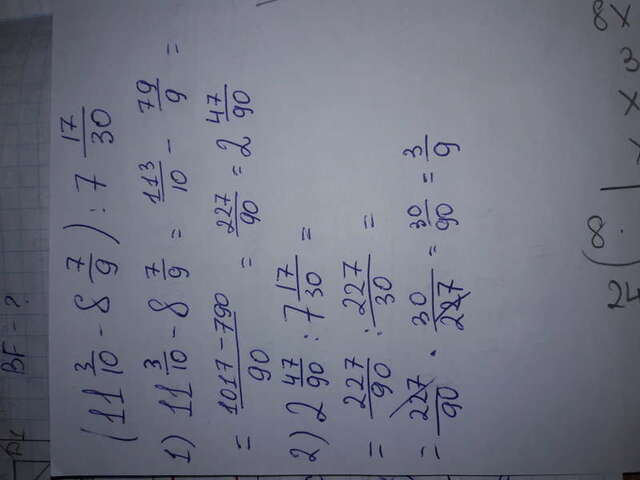 BF - ?
(11 3/10 - 8 7/9) : 7 17/30
1) 11 3/10 - 8 7/9 = 113/10 - 79/9 =
= 1017 - 790/90 = 227/90 = 2 47/90
2) 2 47/90 : 7 17/30 =
= 227/90 : 227/30 =
= 227/90 · 30/227 = 30/90 = 3/9